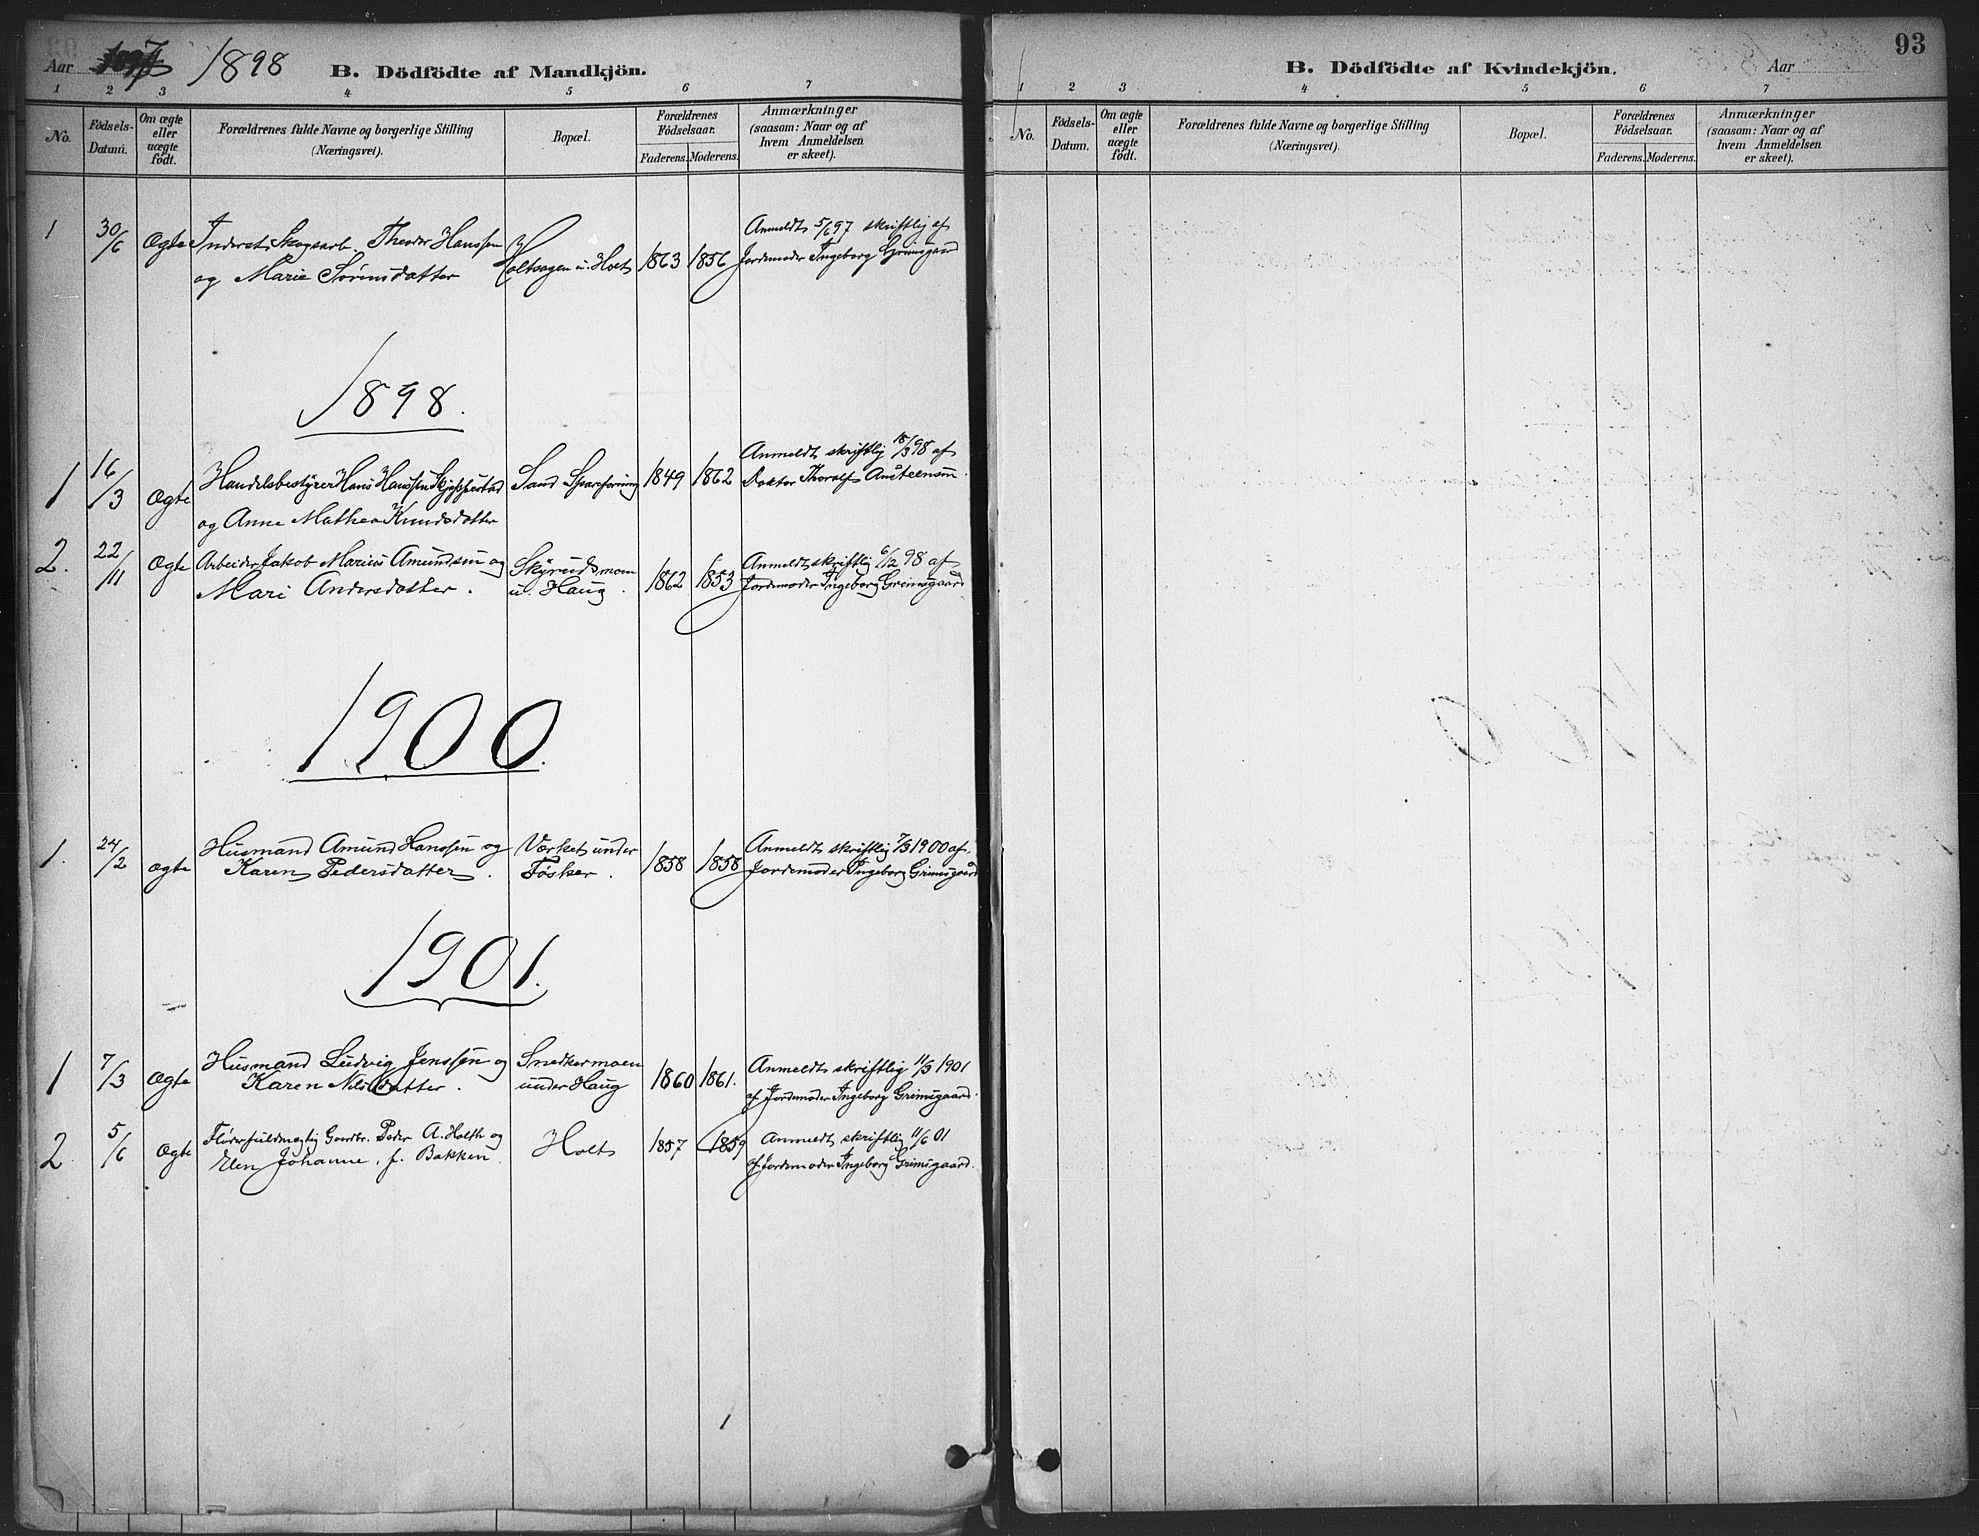 Aar 1898
B. Dödfödte af Mandkjön.
1 2 3 4 5 6 7
No.
Födsels-Datum.
Om ægte eller uægte födt.
Forældrenes fulde Navne og borgerlige Stilling
(Næringsvei).
Bopæl.
Forældrenes Födselsaar.
Faderens. Moderens.
Anmærkninger
(saasom: Naar og af
hvem Anmeldelsen
er skeet).
1 30/6 Ægte Inderst Skogsarb. Theodor Hanssen
og Marie Sørensdatter
Holtsagen u. Holt 1863 1856
Anmeldt 5/6 97 skriftlig af
Jordemoder Ingeborg Grimsgaard
1898.
1 16/3 Ægte Handelsbestyrer Hans Hanssen
og Anne Mathea Knudsdatter
Sand 1849 1862
Anmeldt skriftlig 18/3 98 af
Doktor Thoralf Austeensen
2. 22/11 Ægte Arbeider Jakob Marius Amundsen og
Mari Andersdatter.
Skyrudsmoen
u. Haug. 1862 1853
Anmeldt skriftlig 6/12 98 af
Jordemoder Ingeborg Grimsgaard
1900.
1. 24/2 Ægte Husmand Amund Hanssen og
Karen Pedersdatter.
Værket under
Fosker. 1858 1858
Anmeldt skriftlig 7/3 1900 af
Jordemoder Ingeborg Grimsgaard
1901.
1 7/3 Ægte Husmand Ludvig Jenssen og
Karen Nilsdatter.
Snedkermoen
under Haug 1860 1861.
Anmeldt skriftlig 11/3 1901
af Jordemoder Ingeborg Grimsgaard.
2 5/6 Ægte Gaardbr. Peder A. Holth og
Elen Johanne, f. Bakken
Holt 1857 1859
Anmeldt skriftlig 11/6 01
af Jordemoder Ingeborg Grimsgaard.
93
B. Dödfödte af Kvindekjön.
Aar
1 2 3 4 5 6 7
No.
Födsels-Datum.
Om ægte eller uægte födt.
Forældrenes fulde Navne og borgerlige Stilling
(Næringsvei).
Bopæl.
Forældrenes Födselsaar.
Faderens. Moderens.
Anmærkninger
(saasom: Naar og af
hvem Anmeldelsen
er skeet).